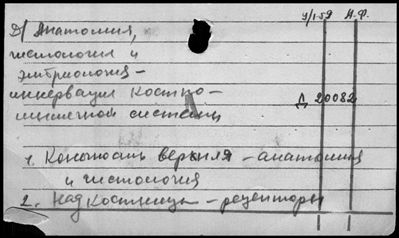 У/159 Н.Ф.
Д/ Анатомия,
гистология и
эмбриология -
иннервация костно-
мышечной системы
Д 20082
1. Конечность верхняя - анатомия
и гистология
2. Надкостница - рецепторы